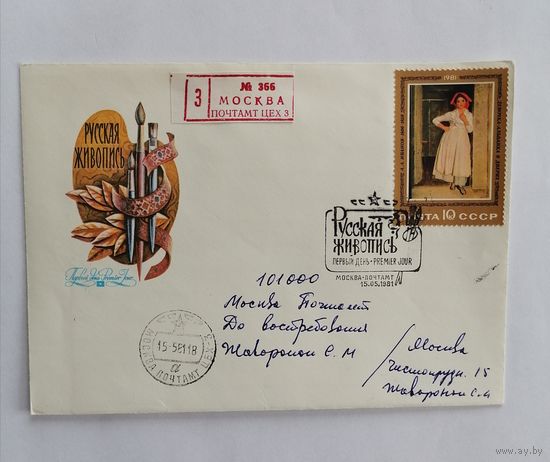 № 366
З МОСКВА
ПОЧТАМТ ЦЕХ 3
РУССКАЯ
ЖИВОПИСЬ
Первый День • Premier Jour
1981
ПОЧТА 10 СССР
РУССКАЯ
ЖИВОПИСЬ
ПЕРВЫЙ ДЕНЬ • PREMIER JOUR
МОСКВА-ПОЧТАМТ
15.05.1981
МОСКВА ПОЧТАМТ ЦЕХ-3
15-581 18
а
101000
Москва Почтамт
До востребования
Жаворонок С. М
Москва
15
Жаворонок С. М
www.ay.by